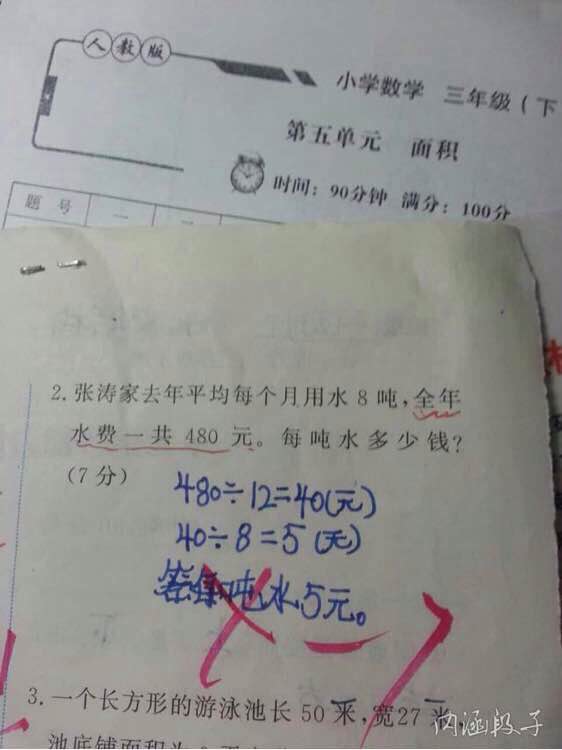 人教版
小学数学 三年级(下
第五单元 面积
时间:90分钟 满分:100分
题 号 一 二
2.张涛家去年平均每个月用水 8 吨,全年
水费一共 480 元。每吨水多少钱?
(7分)
480÷12=40(元)
40÷8=5(元)
答:每吨水5元。
-7
3.一个长方形的游泳池长 50 米,宽27 米,
池底铺面积为
内涵段子